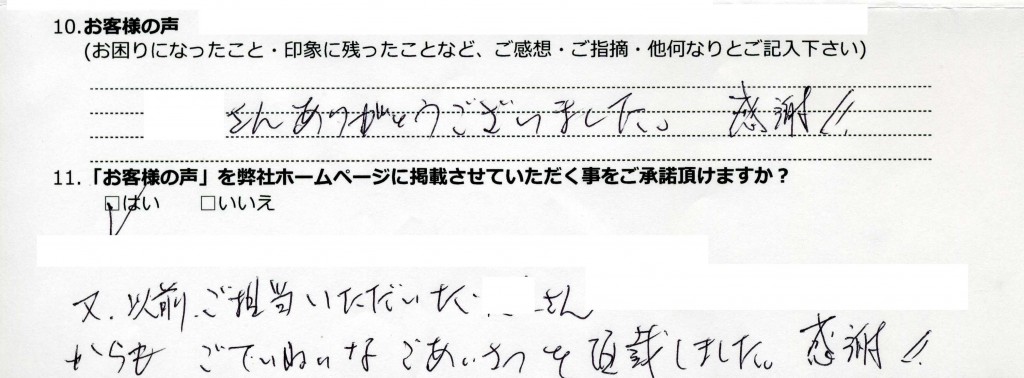 10.お客様の声
(お困りになったこと・印象に残ったことなど、ご感想・ご指摘・他何なりとご記入下さい)
さんありがとうございました。 感謝!!
11.「お客様の声」を弊社ホームページに掲載させていただく事をご承諾頂けますか?
☑はい □いいえ
又、以前、ご担当いただいた さん
からも ごていねいな ごあいさつを頂戴しました。 感謝!!